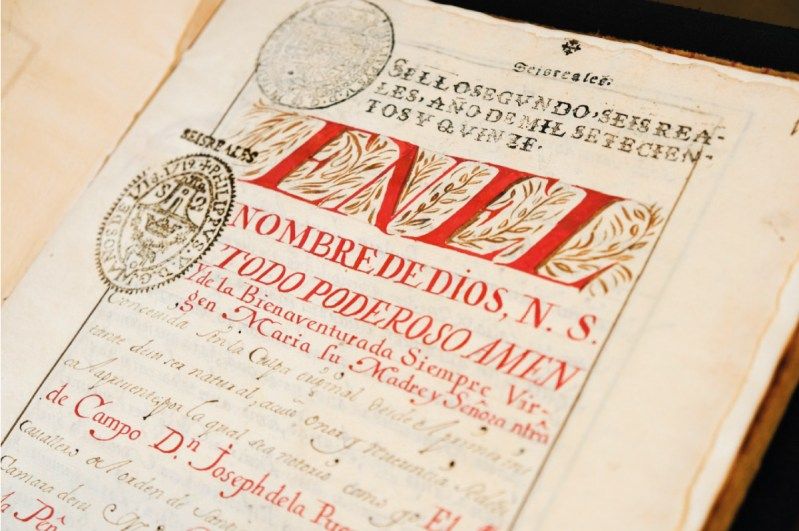 Seisreales.
SELLO SEGVNDO, SEIS REA-
LES, AÑO DE MIL SETECIEN-
TOS Y QVINZE.
SEISREALES
1718.1719.
EN EL
NOMBRE DE DIOS, N. S.
TODO PODEROSO AMEN
Y de la Bienaventurada Siempre Vir-
gen Maria su Madre y Señora nŕa
Concevida sin la Culpa original desde el primer ins
tante de su ser natural,
por la qual sea notorio como yo El
de Campo Dn Joseph de la Pue
cavallero del orden de
Camara de su
la Peñ